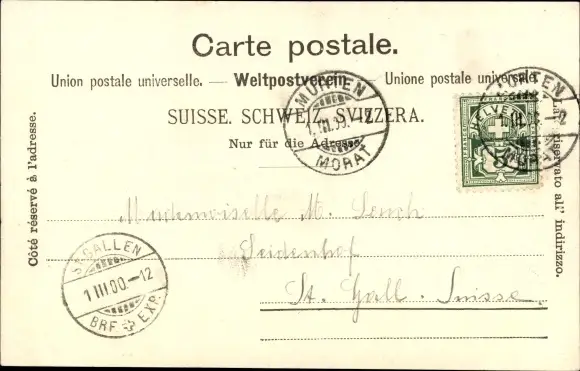 Carte postale.
Union postale universelle. — Weltpostverein — Unione postale universale.
SUISSE. SCHWEIZ. SVIZZERA.
Nur für die Adresse.
Côté réservé à l'adresse.
Lato riservato al' indirizzo.
MURTEN
MORAT
MURTEN
MORAT
HELVETIA
Mademoiselle M.
Seidenhof
St. Gall. Suisse.
ST GALLEN
1 III.00.-12
BRF. EXP.